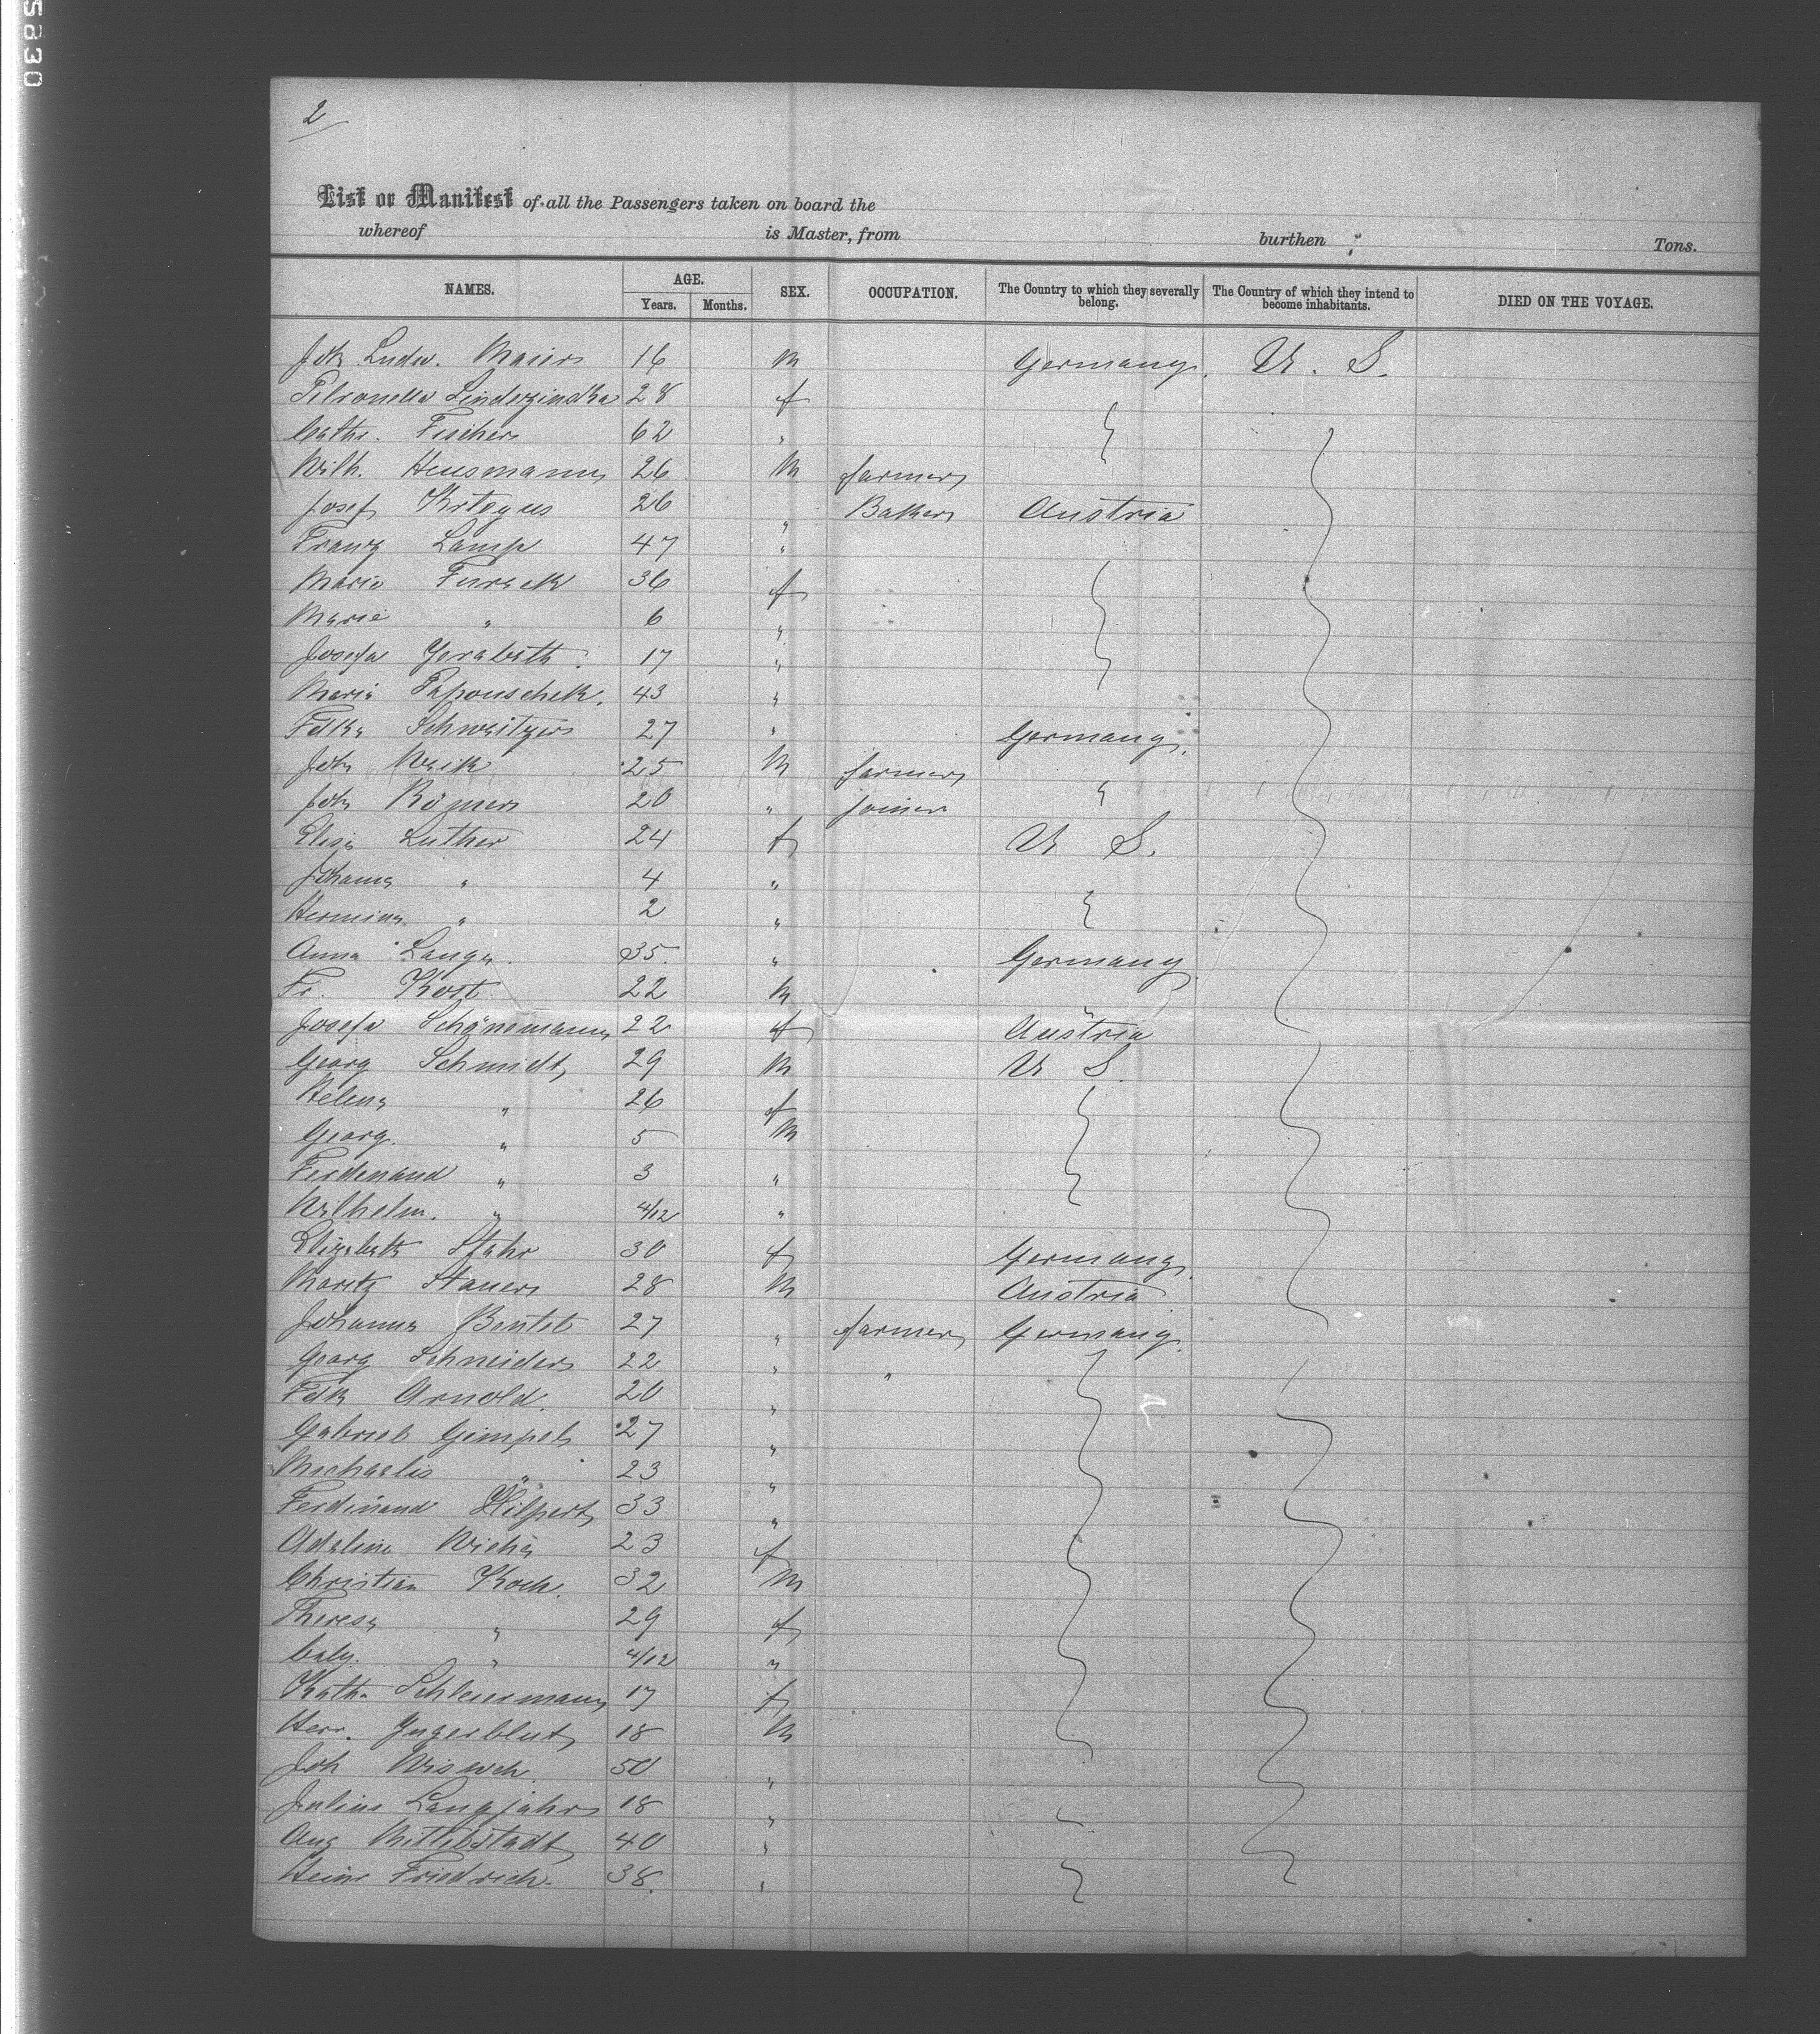 5830
2
List or Manifest of all the Passengers taken on board the
whereof is Master, from burthen Tons.
NAMES. AGE. Years. Months. SEX. OCCUPATION. The Country to which they severally belong. The Country of which they intend to become inhabitants. DIED ON THE VOYAGE.
Joh Ludw. Maier 16 m Germany. U. S.
Petronella 28 f
Cath. Fischer 62 "
Wilh. Heusmann 26 m farmer
Josef 26 " Baker Austria
Franz Lamp 47 "
Marie Fursek 36 f
Marie " 6 "
Josefa Gerabeth 17 "
Maria Papouschek. 43 "
Fdka Schweitzer 27 " Germany.
Joh Weik 25 m farmer
Joh Römer 20 " joiner
Elisa Luther 24 f U S.
Johanna " 4 "
Hermina " 2 "
Anna Lange 35 " Germany
Fr. Kost 22 m
Josefa Schönemann 22 f Austria
Georg Schmidt 29 m U S.
Helena " 26 f
Georg. " 5 m
Ferdinand " 3 "
Wilhelm. " 4/12 "
Elizabeth Stahr 30 f Germany.
Moritz Hauer 28 m Austria
Johanna Bentel 27 " farmer Germany.
Georg Schneider 22 " "
Fdk Arnold. 20 "
Gabriel Gimpel 27 "
Michaelis " 23 "
Ferdinand Hilpert 33 "
Adeline 23 f
Christian Koch. 32 m
Theresa " 29 f
" 4/12 "
Kath. Schleiermann 17 f
Herr. 18 m
Joh 50 "
Julius Langjahr 18 "
Aug Mittelstadt 40 "
Heinr Friedrich. 38. "